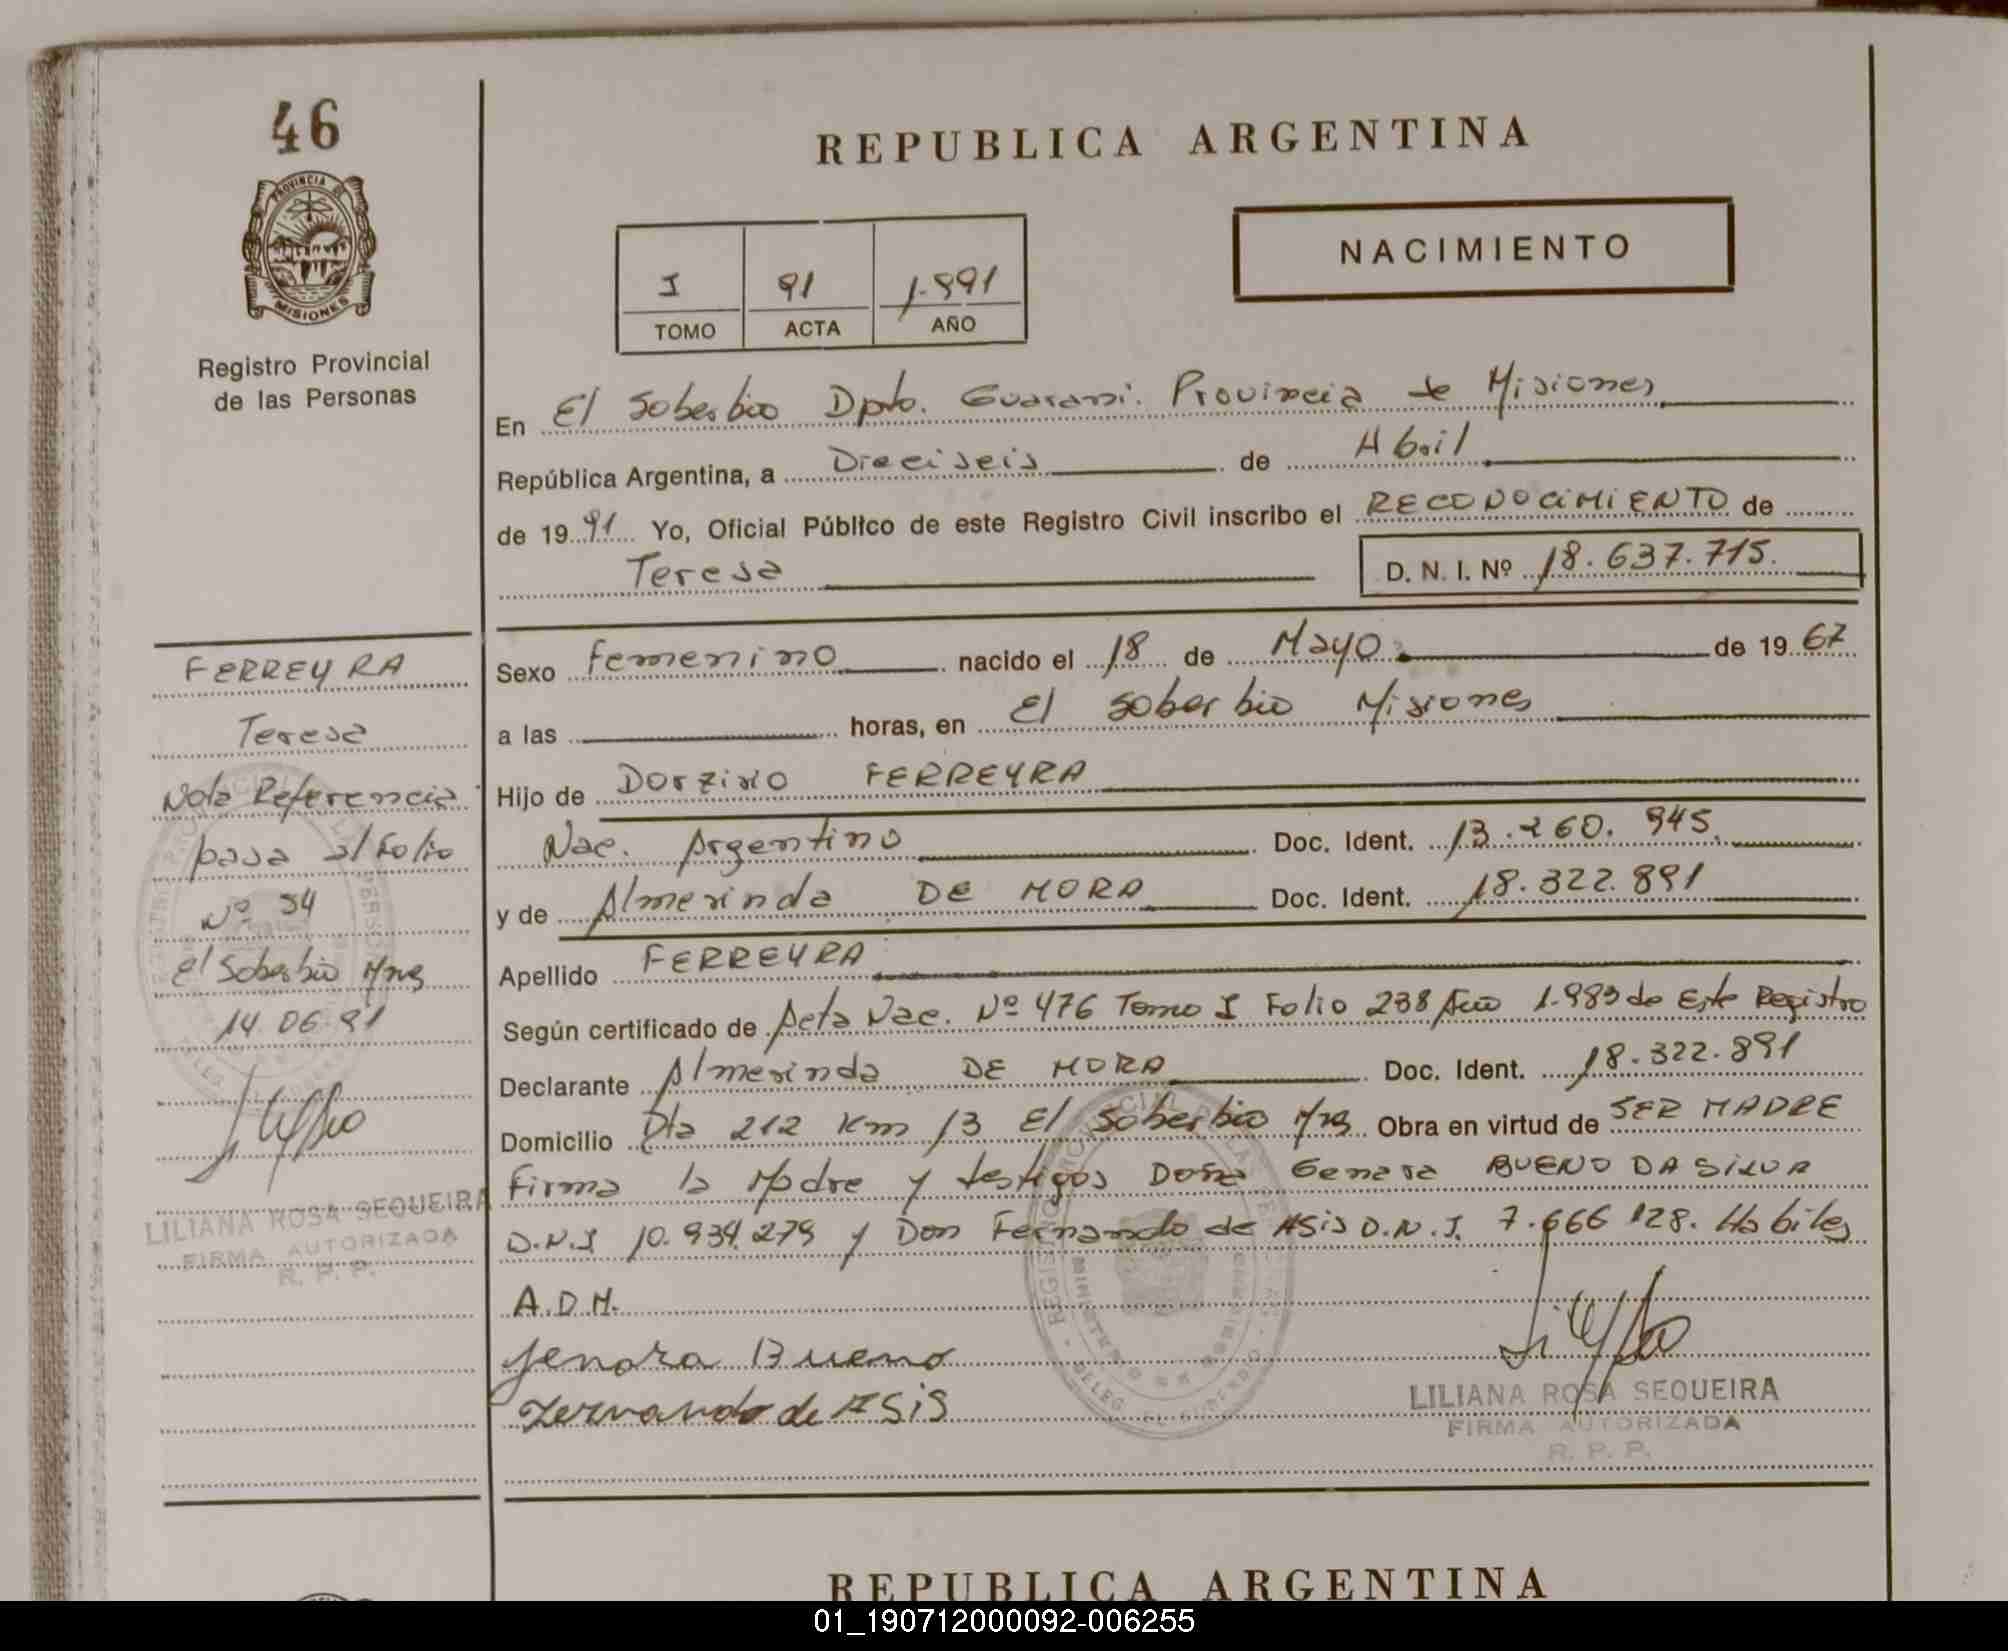 46
PROVINCIA DE
MISIONES
Registro Provincial
de las Personas
REPUBLICA ARGENTINA
NACIMIENTO
I 91 1.991
TOMO ACTA AÑO
En El Soberbio Dpto. Guarani. Provincia de Misiones
República Argentina, a Dieciseis de Abril
de 1991 Yo, Oficial Público de este Registro Civil inscribo el RECONOCIMIENTO de
Teresa D. N. I. Nº 18.637.715.
Sexo Femenino nacido el 18 de Mayo de 1967
a las horas, en El Soberbio Misiones
Hijo de Dorzino FERREYRA
Nac. Argentino Doc. Ident. 13.260.945.
y de Almerinda DE MORA Doc. Ident. 18.322.891
Apellido FERREYRA
Según certificado de Acta Nac. Nº 476 Tomo I Folio 238 Año 1.983 de Este Registro
Declarante Almerinda DE MORA Doc. Ident. 18.322.891
Domicilio Rta 212 Km 13 El Soberbio Mns Obra en virtud de SER MADRE
Firma la Madre y testigos Doña Genara BUENO DA SILVA
D.N.I 10.934.279 y Don Fernando de ASis D.N.I. 7.666.128. Habiles
A.D.M.
Jenara Bueno
Fernando de ASiS
LILIANA ROSA SEQUEIRA
FIRMA AUTORIZADA
R. P. P.
FERREYRA
Teresa
Nota Referencia
pasa al Folio
Nº 94
El Soberbio Mns
14.06.91
LILIANA ROSA SEQUEIRA
FIRMA AUTORIZADA
R. P. P.
REPUBLICA ARGENTINA
01_190712000092-006255